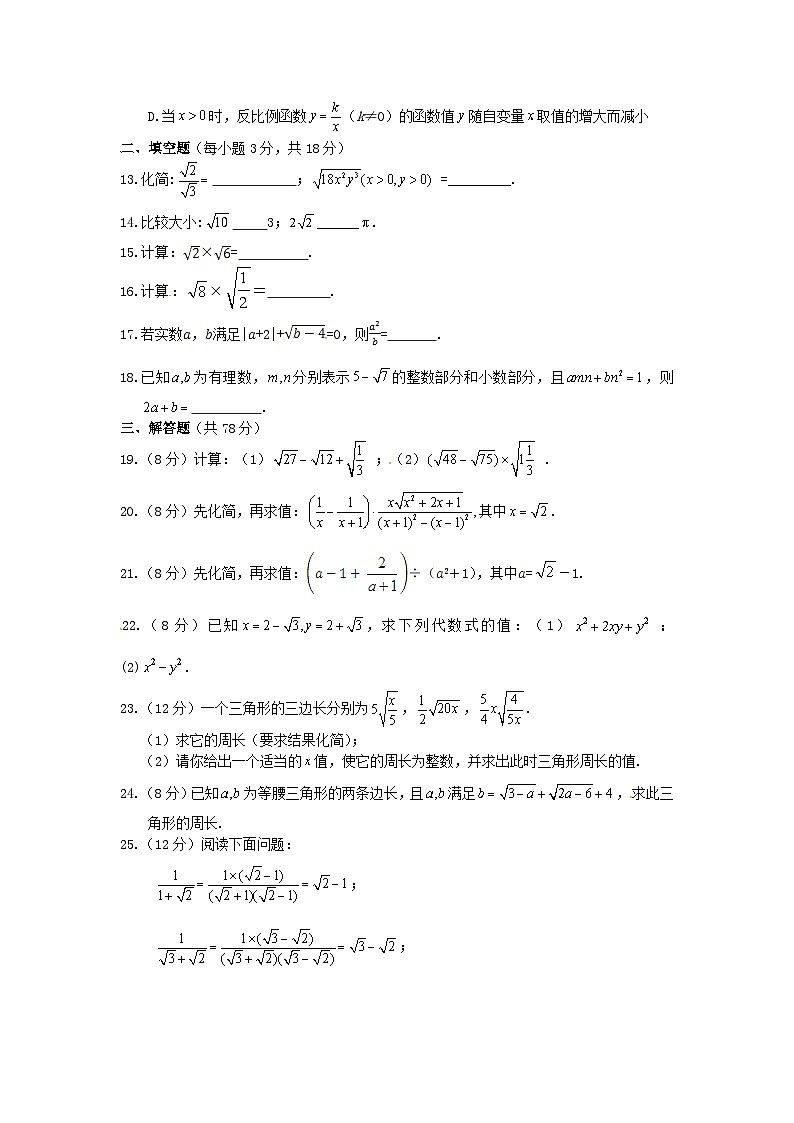 D.当 x>0 时，反比例函数 y=k/x（k≠0）的函数值 y 随自变量 x 取值的增大而减小
二、填空题(每小题 3 分，共 18 分)
13.化简: √2/√3= ____________; √(18x²y³)(x>0,y>0) =_________.
14.比较大小: √10 _____3; 2√2 ______ π.
15.计算: √2×√6=__________.
16.计算: √8 × √(1/2) =_________.
17.若实数a，b满足|a+2|+√(b-4)=0，则a²/b=_______.
18.已知 a,b 为有理数，m,n 分别表示 5-√7 的整数部分和小数部分，且 amn+bn²=1，则
2a+b= __________.
三、解答题(共 78 分)
19.(8 分)计算: (1) √27-√12+√(1/3) ; (2) (√48-√75)×√(1 1/3) .
20.(8 分)先化简，再求值: (1/x-1/(x+1))·x√(x²+2x+1)/((x+1)²-(x-1)²),其中 x=√2.
21.(8 分)先化简，再求值: (a-1+2/(a+1))÷(a²+1),其中a=√2-1.
22.(8 分)已知 x=2-√3,y=2+√3，求下列代数式的值:(1) x²+2xy+y² ;
(2) x²-y².
23.(12 分)一个三角形的三边长分别为 5√(x/5)，1/2√(20x)，5/4x√(4/(5x)).
(1)求它的周长(要求结果化简);
(2)请你给出一个适当的 x 值，使它的周长为整数，并求出此时三角形周长的值.
24.(8 分)已知 a,b 为等腰三角形的两条边长，且 a,b 满足 b=√(3-a)+√(2a-6)+4，求此三
角形的周长.
25.(12 分)阅读下面问题:
1/(1+√2)=1×(√2-1)/((√2+1)(√2-1))=√2-1;
1/(√3+√2)=1×(√3-√2)/((√3+√2)(√3-√2))=√3-√2;